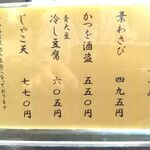 葉わさび 四九五円
かつを酒盗 五五〇円
青大豆
冷し豆腐 六〇五円
じゃこ天 七七〇円